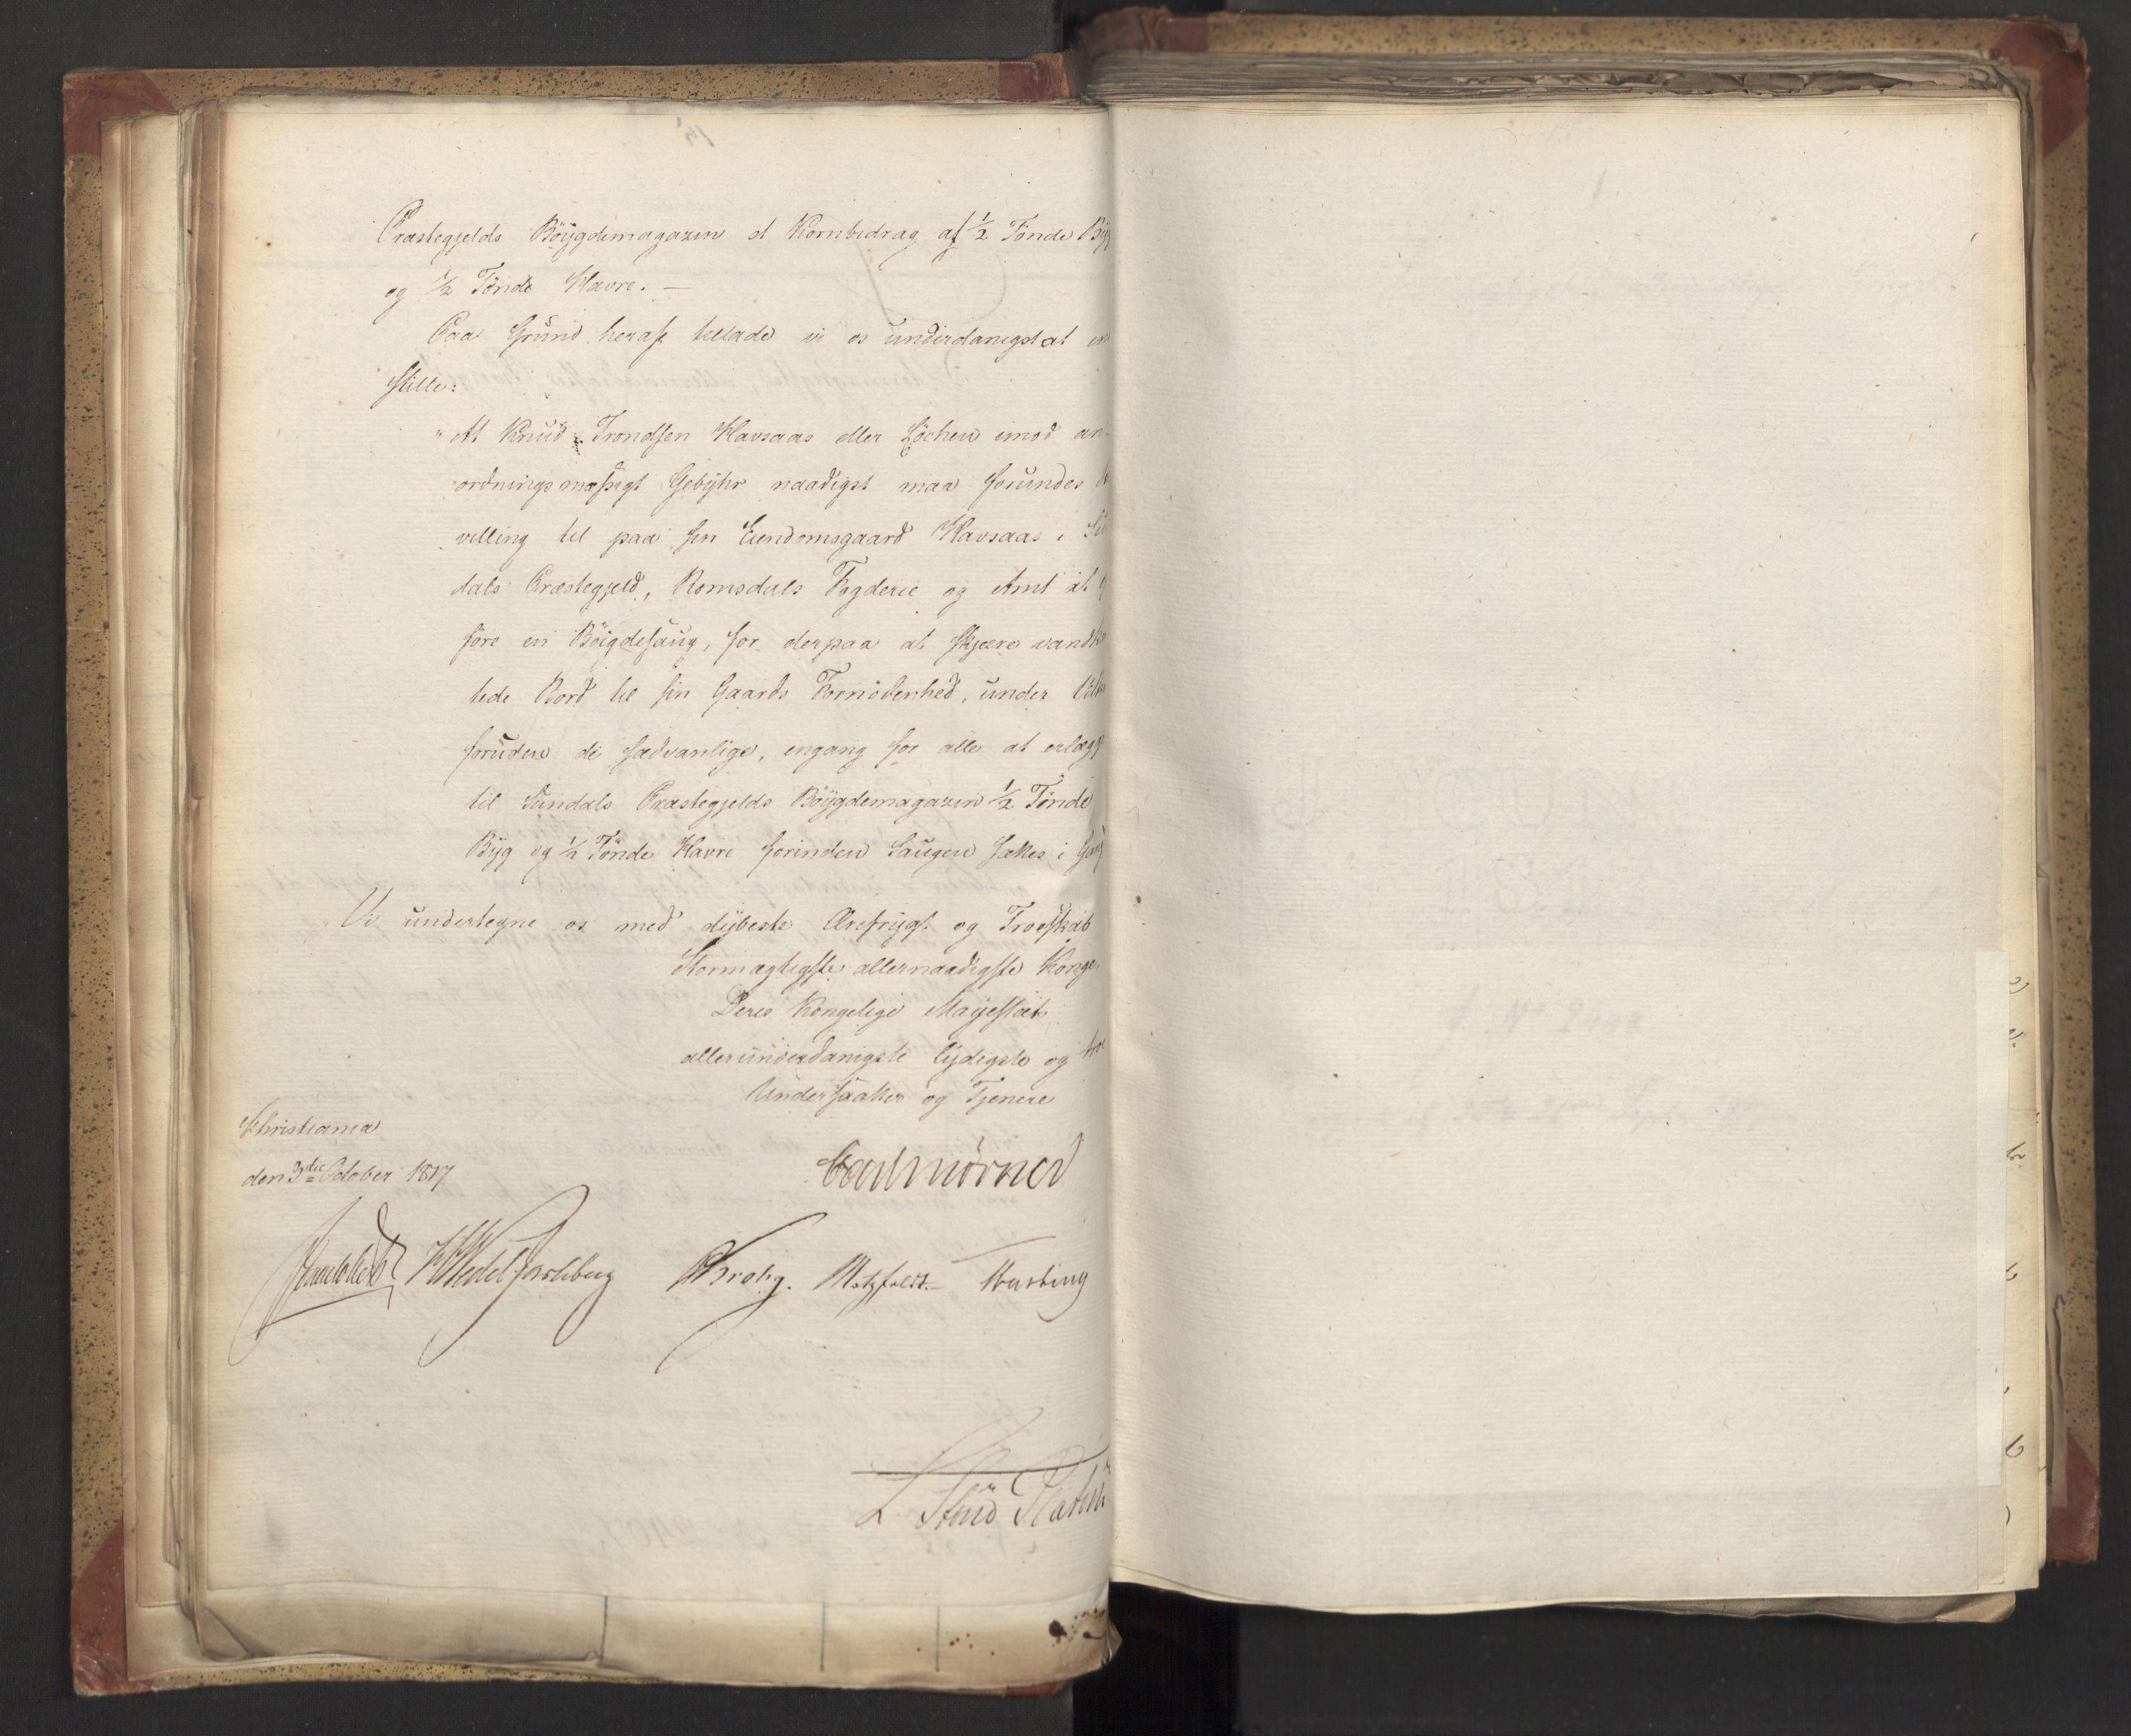 Præstegjelds Böÿgdemagazin et Kornbidrag af ½ Tönde Byg
og ½ Tönde Havre. —
Paa Grund heraf tillade vi os underdanigst at
stille:
"At Knud Trondsen Havsaas eller Löchen imod an-
ordningsmæssigt Gebÿhr naadigst maa forundes
villing til paa sin Eiendomsgaard Havsaas i
dals Præstegjeld, Romsdals Fogderie og Amt at
före en Böigdesaug, for derpaa at skjære
tede Bord til sin Gaards Fornödenhed, under
foruden de sædvanlige, engang for alle at erlægg
til Sundals Præstegjelds Böÿgdemagazin ½ Tönde
Bÿg og ½ Tönde Havre forinden Saugen sættes i Gang
Vi undertegne os med dÿbeste Ærefrygt og Troeskab
Stormægtigste allernaadigste Konge
Deres Kongelige Majestæt
allerunderdanigste lÿdigste og troe
Undersaatter og Tjenere
Christiania
den 3die October 1817
Carl Mörner
HWedel Jarlsberg Krohg. Motzfeldt. Hasting